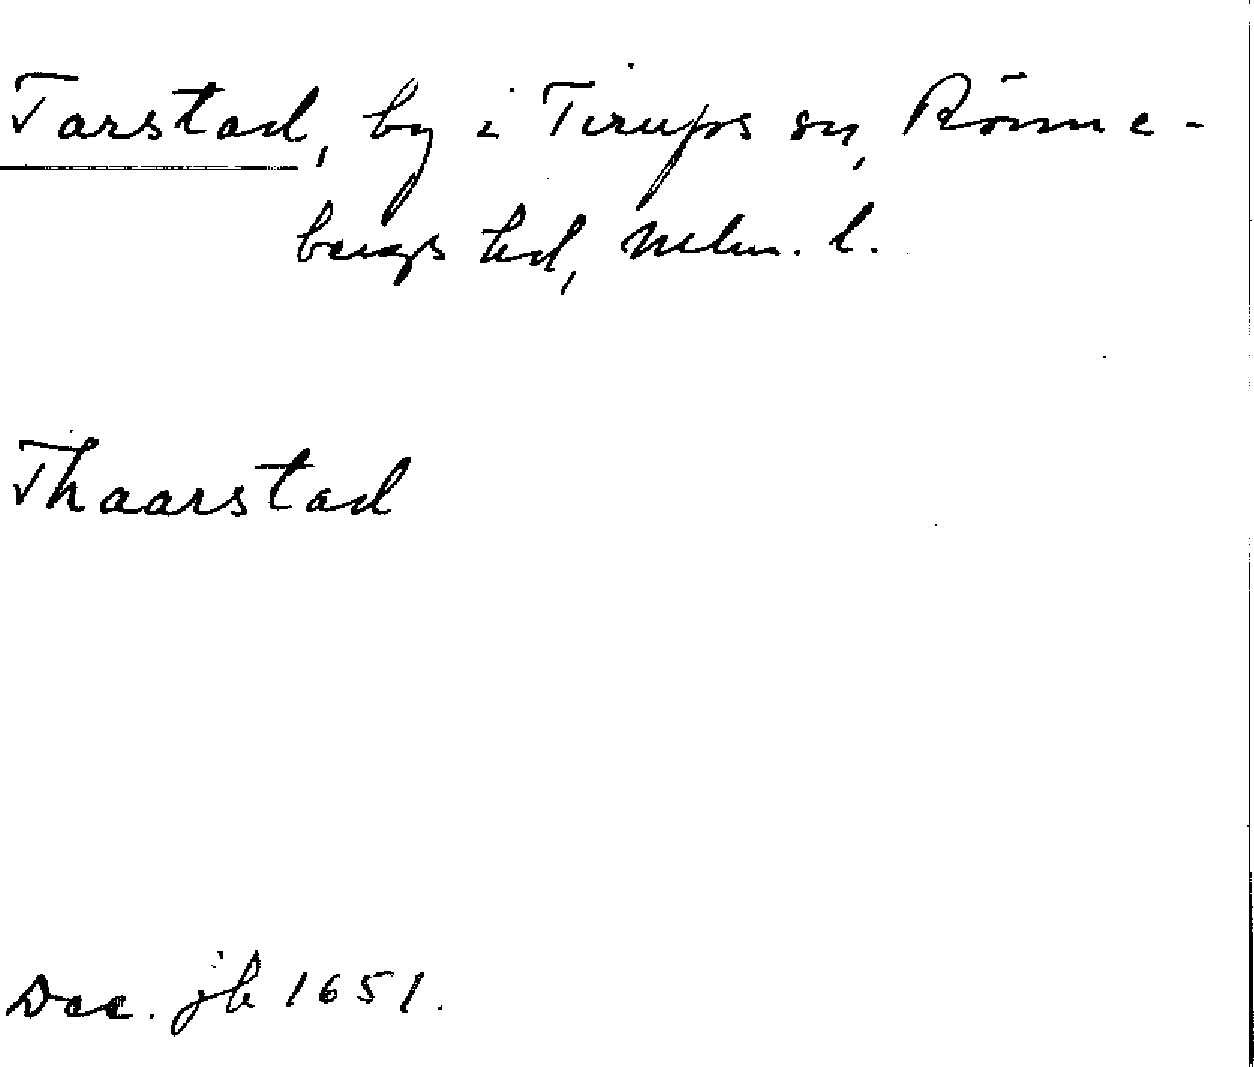 Tarstad, by i Tirups sn, Rönne-
bergs hd, Mlm. l.
Thaarstad
Dec. jb 1651.